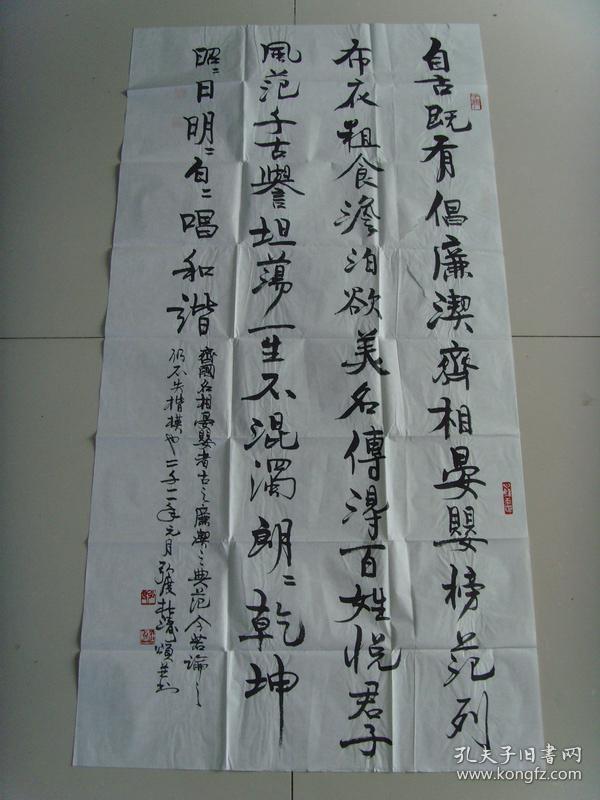 自古既有倡廉潔齊相晏嬰榜苑列
布衣粗食澹泊欲美名傳得百姓悅君子
風范千古譽坦蕩一生不混濁朗〻乾坤
昭〻日明〻白〻唱和谐
齊國名相晏嬰者古之廉潔之典范今若論之
仍不失楷模也二千十一年元月
頌并书
孔夫子旧書网
www.kongfz.com